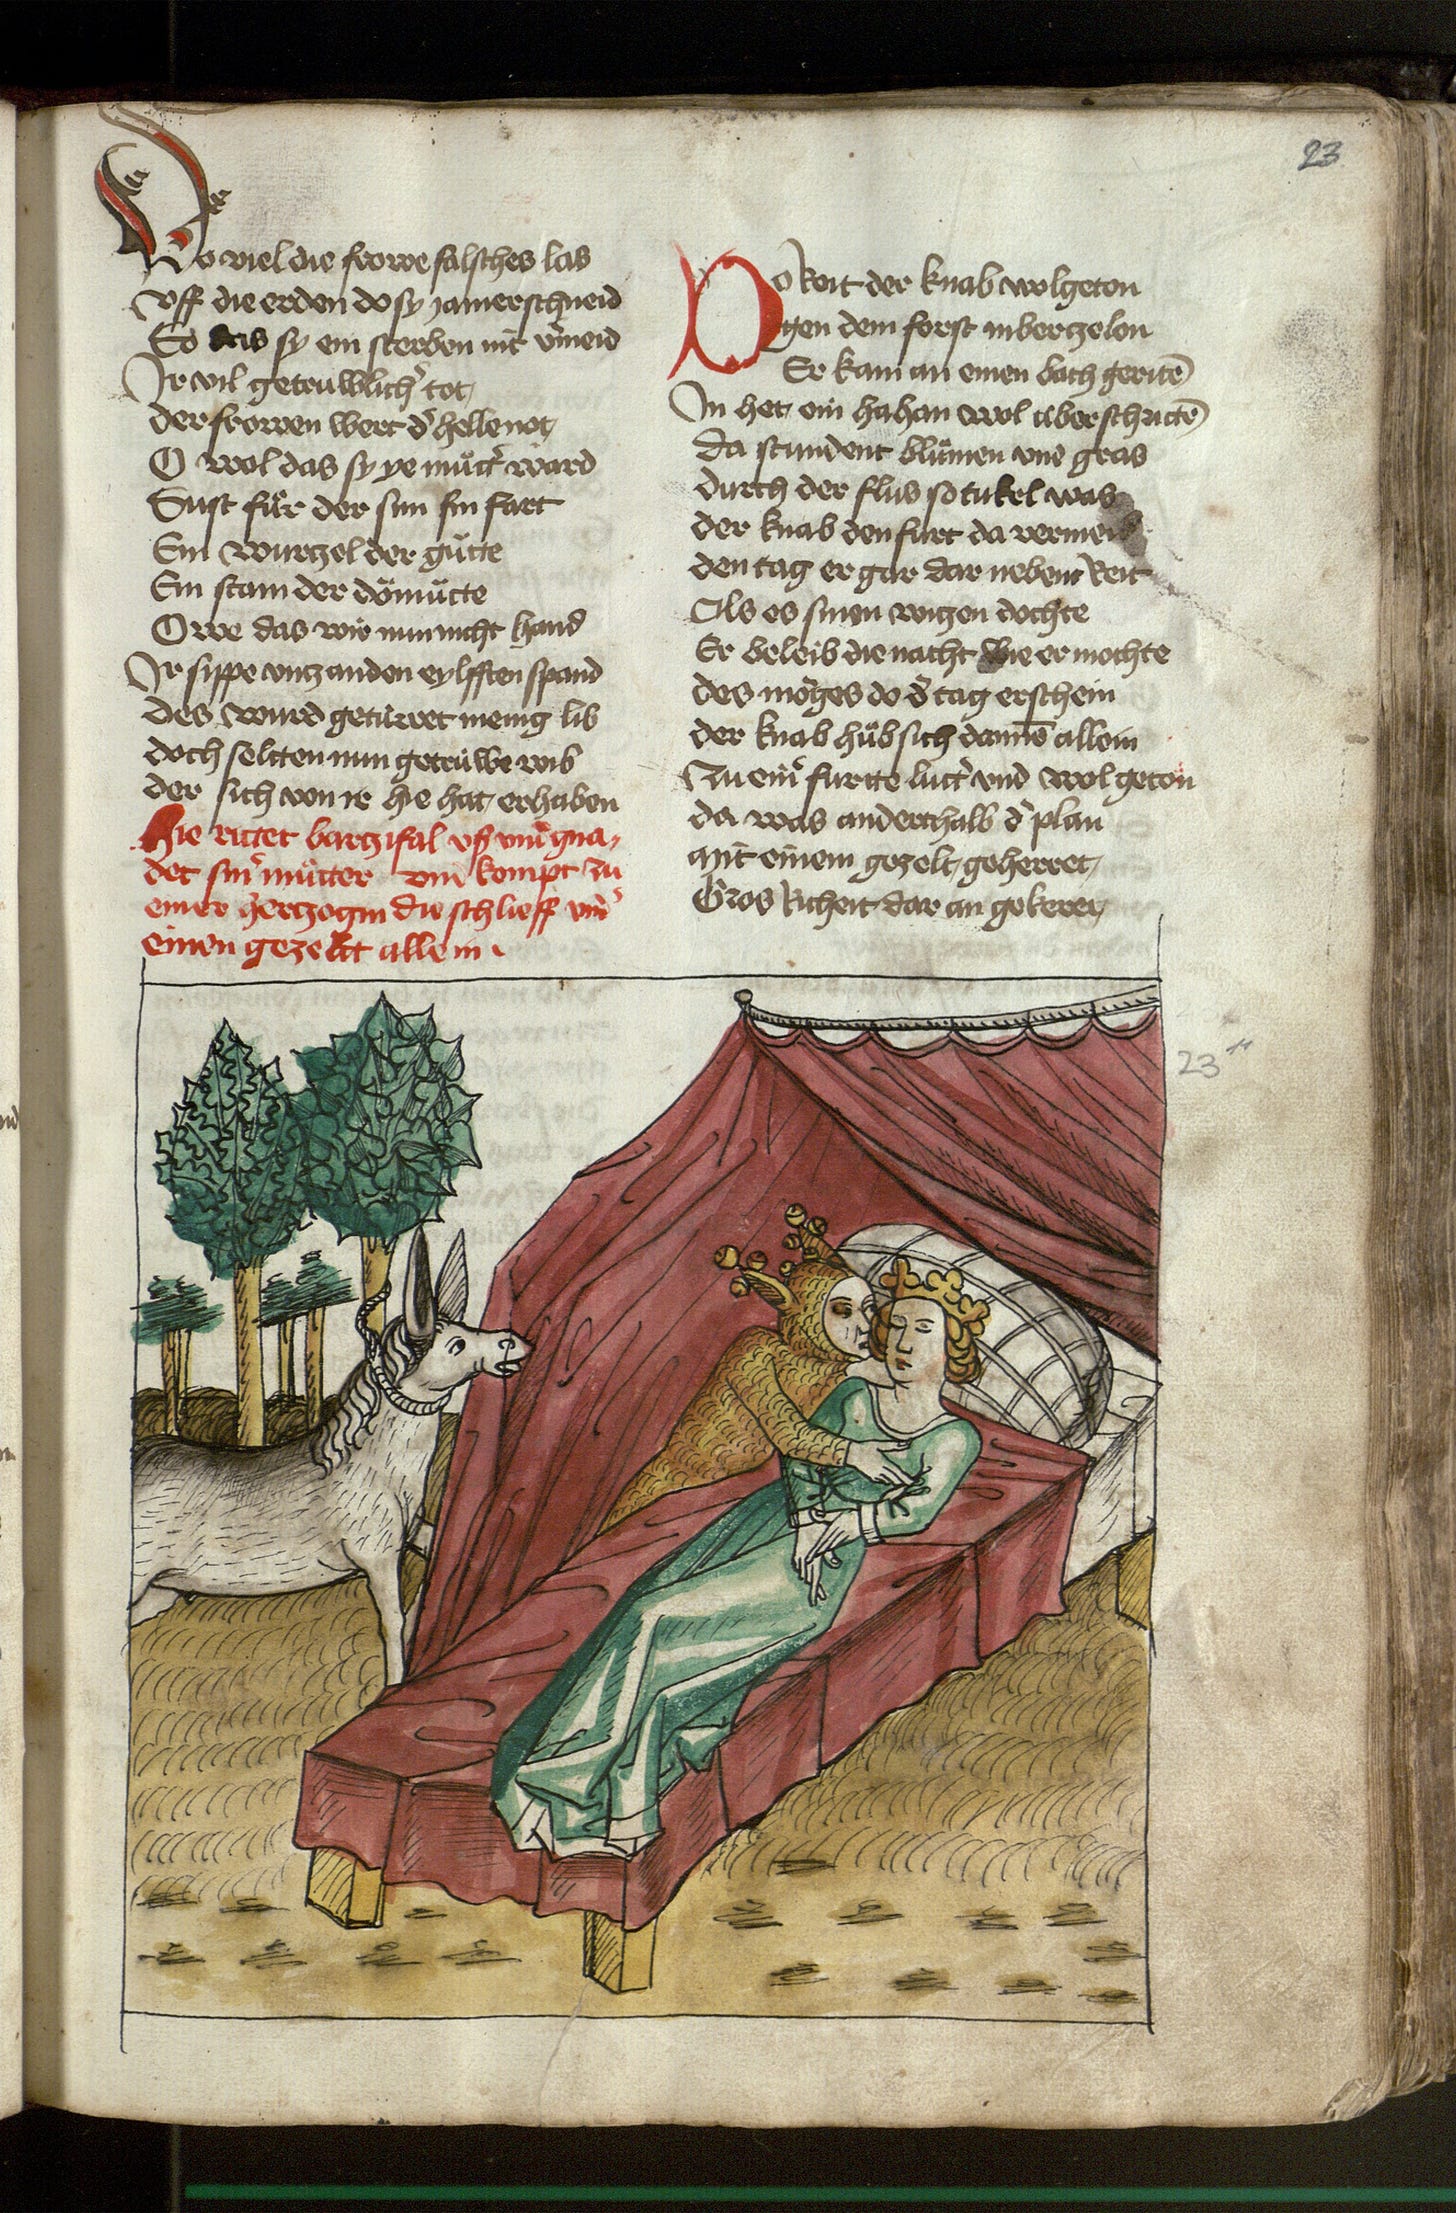 23
Do viel die frowe falsches las
Vff die erden do sy jamer schneid
So das sy ein sterben nit v̾meid
Ir vil getrúwlich̾ tot
der frowen wert d̾ hellenot
O wol das sy ye mut̾ ward
Sust für der sun sin fart
Ein wurtzel der gůtte
Ein stam der dömůtte
Owe das wir nun nicht hand
Ir sippe vntz an den eylfften spand
Des wurd getürret menig lib
doch soltten nun getrúwe wib
der sich von ir hie hat erhaben
hie rittet bartzifal vß vnd̾ gna-
det sin̾ můtter vnd kompt zu
einer hertzogin die schlieff vnd̾
einen gezeltt allein .
Do Reit der knab wolgeton
gen dem forst in bertzelon
Er kam an einen bach geritē
In het ein hahan wol überschrittē
da stundent blůmen vnd gras
durch der flus so tukel was
der knab den furt da vermeid
den tag er gar dar nebent Reit
Als es sinen witzen dochte
Er beleib die nacht wie er mochte
des morges do d̾ tag erschein
der knab hůb sich dannē allein
Zu eim̾ furtte lutt̾ vnd wol geton
da was anderthalb d̾ plan
mit einem gezelt geherret
Gros Richeit dar an gekeret
23r